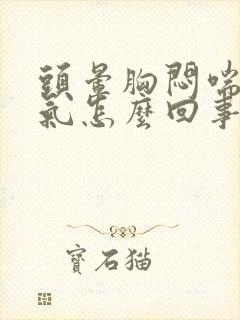 頭暈胸悶喘
氣怎麼回事
寶石猫